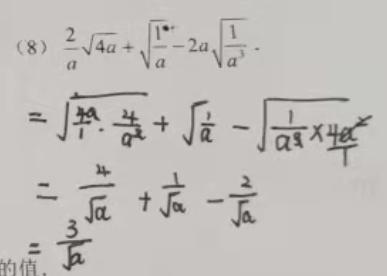 (8) \frac{2}{a}\sqrt{4a} + \sqrt{\frac{1}{a}} - 2a\sqrt{\frac{1}{a^3}}.
= \sqrt{\frac{4a}{1} \cdot \frac{4}{a^2}} + \sqrt{\frac{1}{a}} - \sqrt{\frac{1}{a^3} × \frac{4a^2}{1}}
= \frac{4}{\sqrt{a}} + \frac{1}{\sqrt{a}} - \frac{2}{\sqrt{a}}
= \frac{3}{\sqrt{a}}
的值.